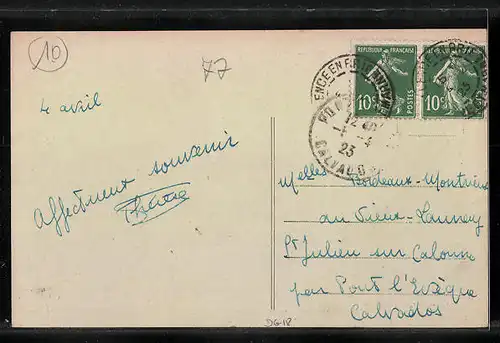 10
77
4 avril
Affectueux souvenir
REPUBLIQUE FRANÇAISE
10c
POSTES
10c
12
4
23
CALVADOS
Melles Bordeaux-Montrieux
au Vieux-Launey
St Julien sur Calonne
par Pont l'Evêque
Calvados
DG18